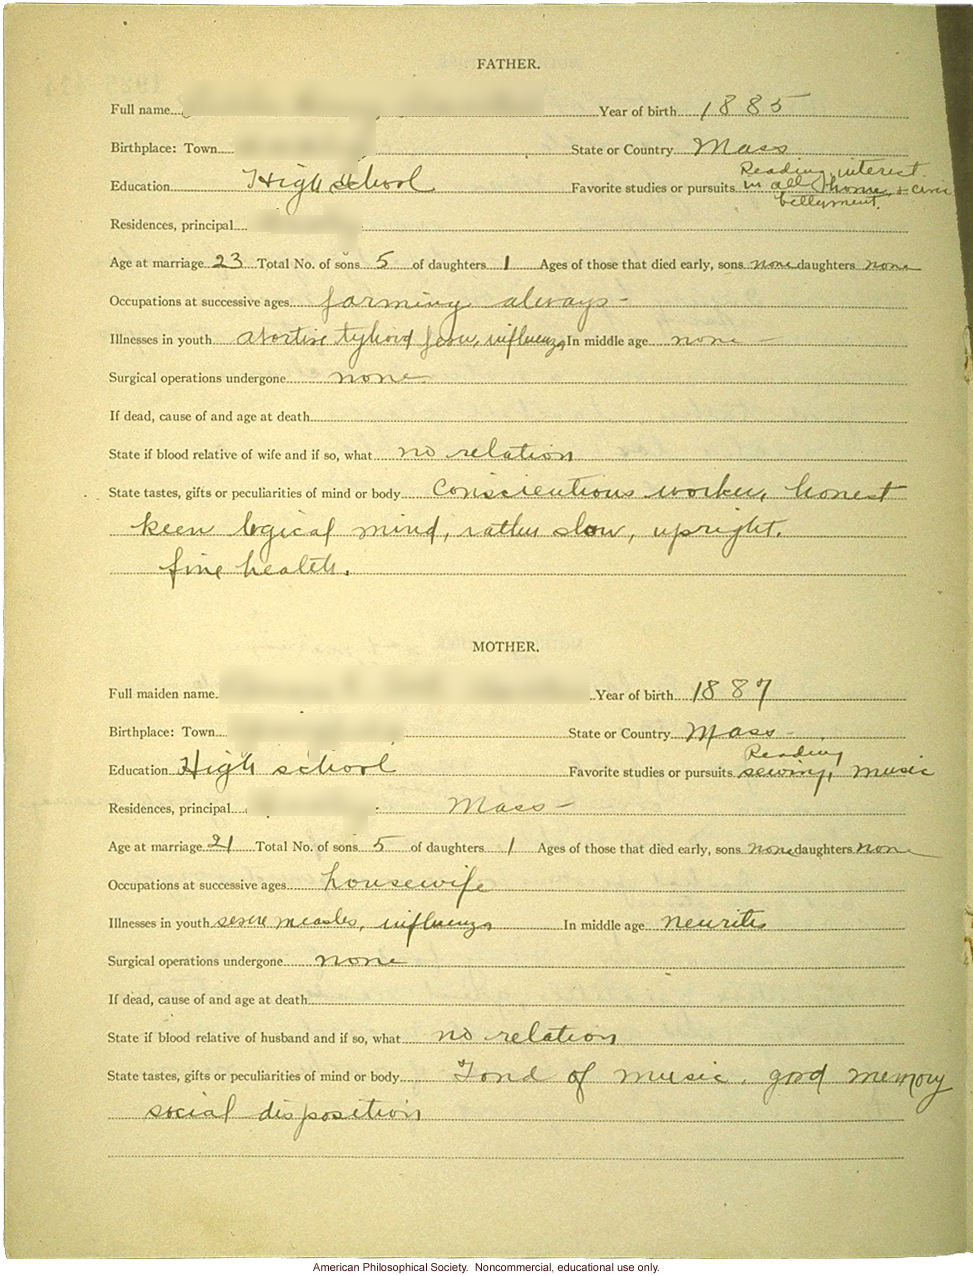 FATHER.
Full name
Year of birth 1885
Birthplace: Town
State or Country Mass
Education High school
Favorite studies or pursuits Reading, interest
in all home & civic
Residences, principal
Age at marriage 23 Total No. of sons 5 of daughters 1 Ages of those that died early, sons none daughters none
Occupations at successive ages farming always -
Illnesses in youth abortive typhoid fever, influenza In middle age none -
Surgical operations undergone none
If dead, cause of and age at death
State if blood relative of wife and if so, what no relation
State tastes, gifts or peculiarities of mind or body Conscientious worker, honest
keen logical mind, rather slow, upright.
fine health.
MOTHER.
Full maiden name.
Year of birth 1887
Birthplace: Town
State or Country Mass -
Education High school
Favorite studies or pursuits Reading
sewing, music
Residences, principal Mass -
Age at marriage 21 Total No. of sons 5 of daughters 1 Ages of those that died early, sons none daughters none
Occupations at successive ages housewife
Illnesses in youth severe measles, influenza In middle age neuritis
Surgical operations undergone none
If dead, cause of and age at death
State if blood relative of husband and if so, what no relation
State tastes, gifts or peculiarities of mind or body Fond of music, good memory
social disposition
American Philosophical Society. Noncommercial, educational use only.